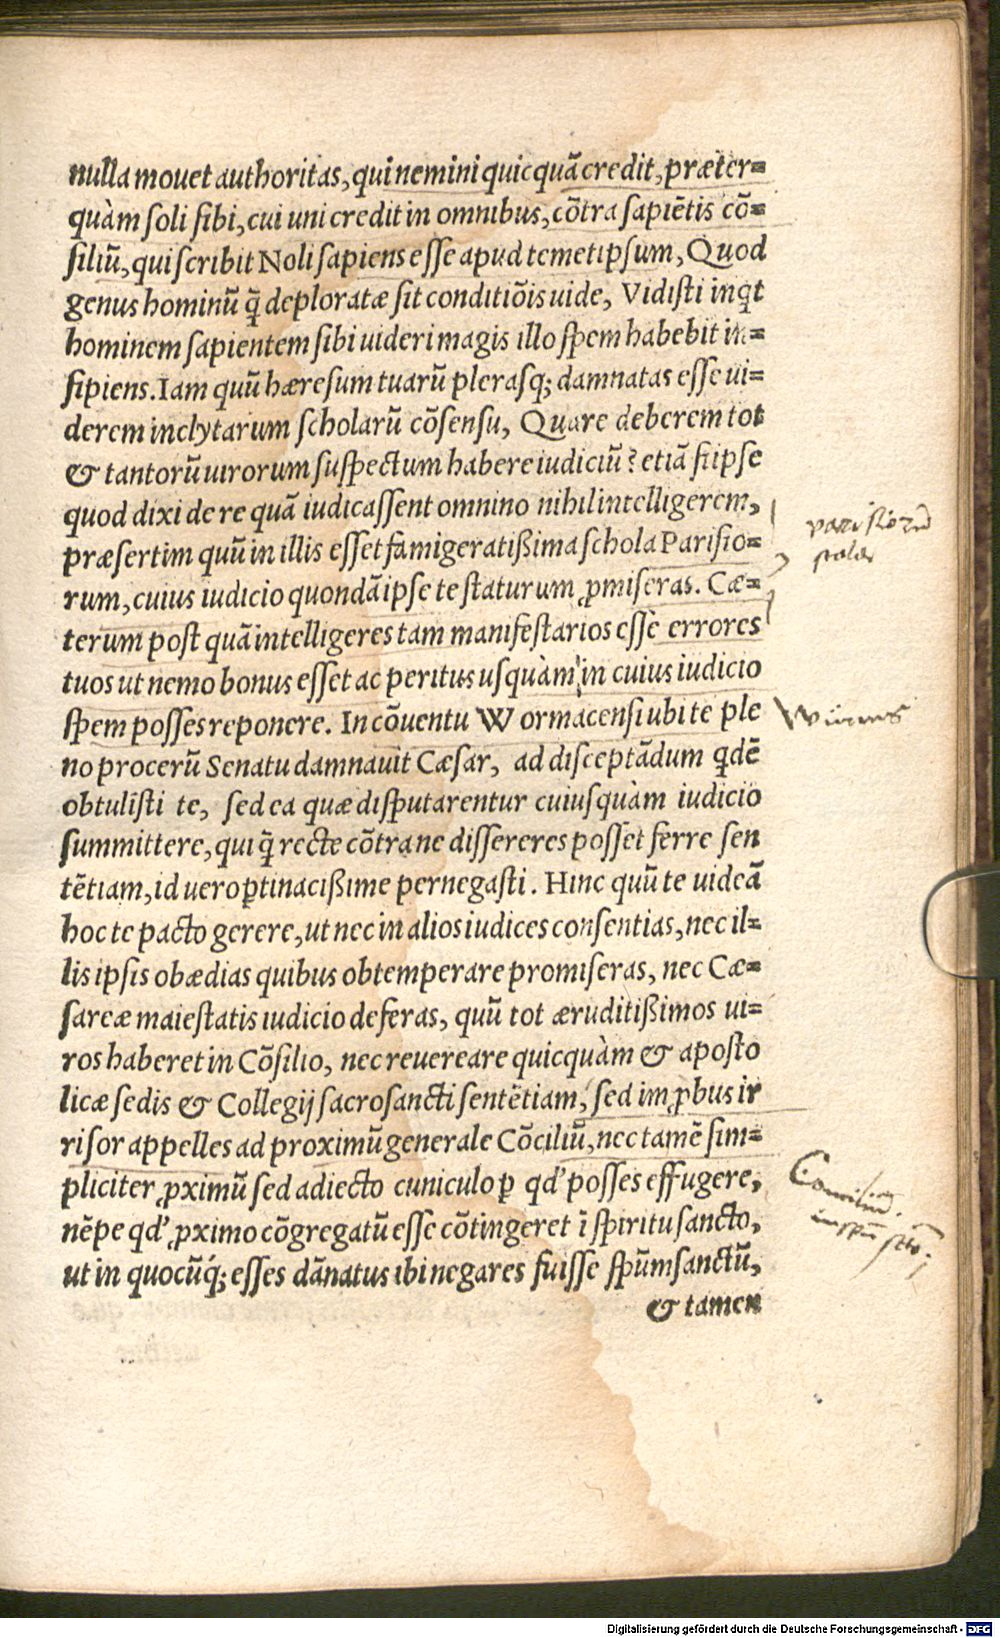 nulla mouet authoritas, qui nemini quicquã credit, præter=
quàm soli sibi, cui uni credit in omnibus, cõtra sapiẽtis cõ=
siliũ, qui scribit Noli sapiens esse apud temetipsum, Quod
genus hominũ q̃ deploratæ sit conditiõis uide, Vidisti inqt
hominem sapientem sibi uideri magis illo spem habebit in=
sipiens. Iam quũ hæresum tuarũ plerasq; damnatas esse ui=
derem inclytarum scholarũ cõsensu, Quare deberem tot
& tantorũ uirorum suspectum habere iudiciũ? etiã si ipse
quod dixi de re quã iudicassent omnino nihil intelligerem,
præsertim quũ in illis esset famigeratißima schola Parisio=
rum, cuius iudicio quondã ipse te staturum ꝓmiseras. Cæ=
terum post quã intelligeres tam manifestarios esse errores
tuos ut nemo bonus esset ac peritus usquàm in cuius iudicio
spem posses reponere. In cõuentu Wormacensi ubi te ple
no procerũ Senatu damnauit Cæsar, ad disceptãdum qdẽ
obtulisti te, sed ea quæ disputarentur cuiusquàm iudicio
summittere, qui q̃ recte cõtra ne dissereres posset ferre sen
tẽtiam, id uero ꝑtinacißime pernegasti. Hinc quũ te uideã
hoc te pacto gerere, ut nec in alios iudices consentias, nec il=
lis ipsis obædias quibus obtemperare promiseras, nec Cæ=
sareæ maiestatis iudicio deferas, quũ tot æruditißimos ui=
ros haberet in Cõsilio, nec reuereare quicquàm & aposto
licæ sedis & Collegij sacrosancti sentẽtiam, sed imꝓbus ir
risor appelles ad proximũ generale Cõciliũ, nec tamẽ sim=
pliciter ꝓximũ sed adiecto cuniculo ꝑ qd' posses effugere,
nẽpe qd' ꝓximo cõgregatũ esse cõtingeret ĩ spiritu sancto,
ut in quocũq; esses dãnatus ibi negares fuisse spũm sanctũ,
& tamen
parisiorũ
scola
Wurms
Conciliũ.
in spũ scto.
Digitalisierung gefördert durch die Deutsche Forschungsgemeinschaft - DFG